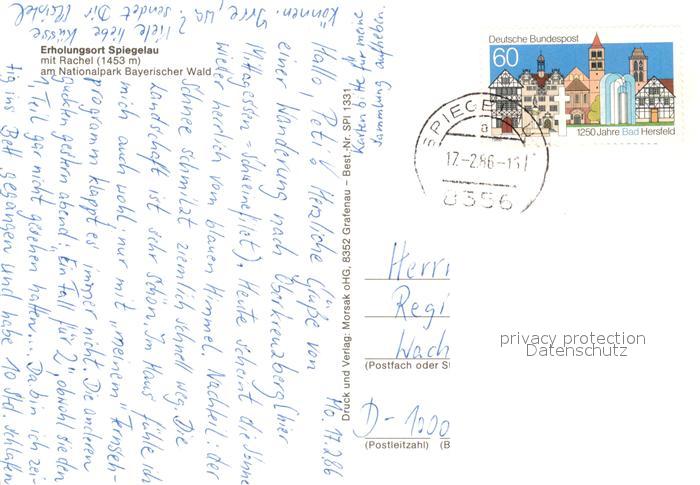 Erholungsort Spiegelau
mit Rachel (1453 m)
am Nationalpark Bayerischer Wald
Deutsche Bundespost
60
1250 Jahre Bad Hersfeld
17.-2.86-16
8356
Mo. 17.2.86
Hallo, Peti! Herzliche Grüße von
einer Wanderung nach Oberkreuzberg (hier
Mittagessen = Schweinefilet). Heute scheint die Sonne
wieder herrlich vom blauen Himmel. Nachteil: der
Schnee schmilzt ziemlich schnell weg. Die
Landschaft ist sehr schön. Im Haus fühle ich
mich auch wohl: nur mit "meinem" Fernseh-
programm klappt es immer nicht. Die anderen
guckten gestern abend: "Ein Fall für 2", obwohl sie den
Teil gar nicht gesehen hatten... Da bin ich zei-
tig ins Bett gegangen und habe 10 Std. schlafen
können. Irre, wa?
Viele liebe Küsse
sendet Dir
Karten bitte für meine
Sammlung aufheben.
Druck und Verlag: Morsak oHG, 8352 Grafenau – Best.-Nr. SPI 1331
Herrn
Regi
Wach
(Postfach oder St
D-1000
(Postleitzahl) (B
privacy protection
Datenschutz